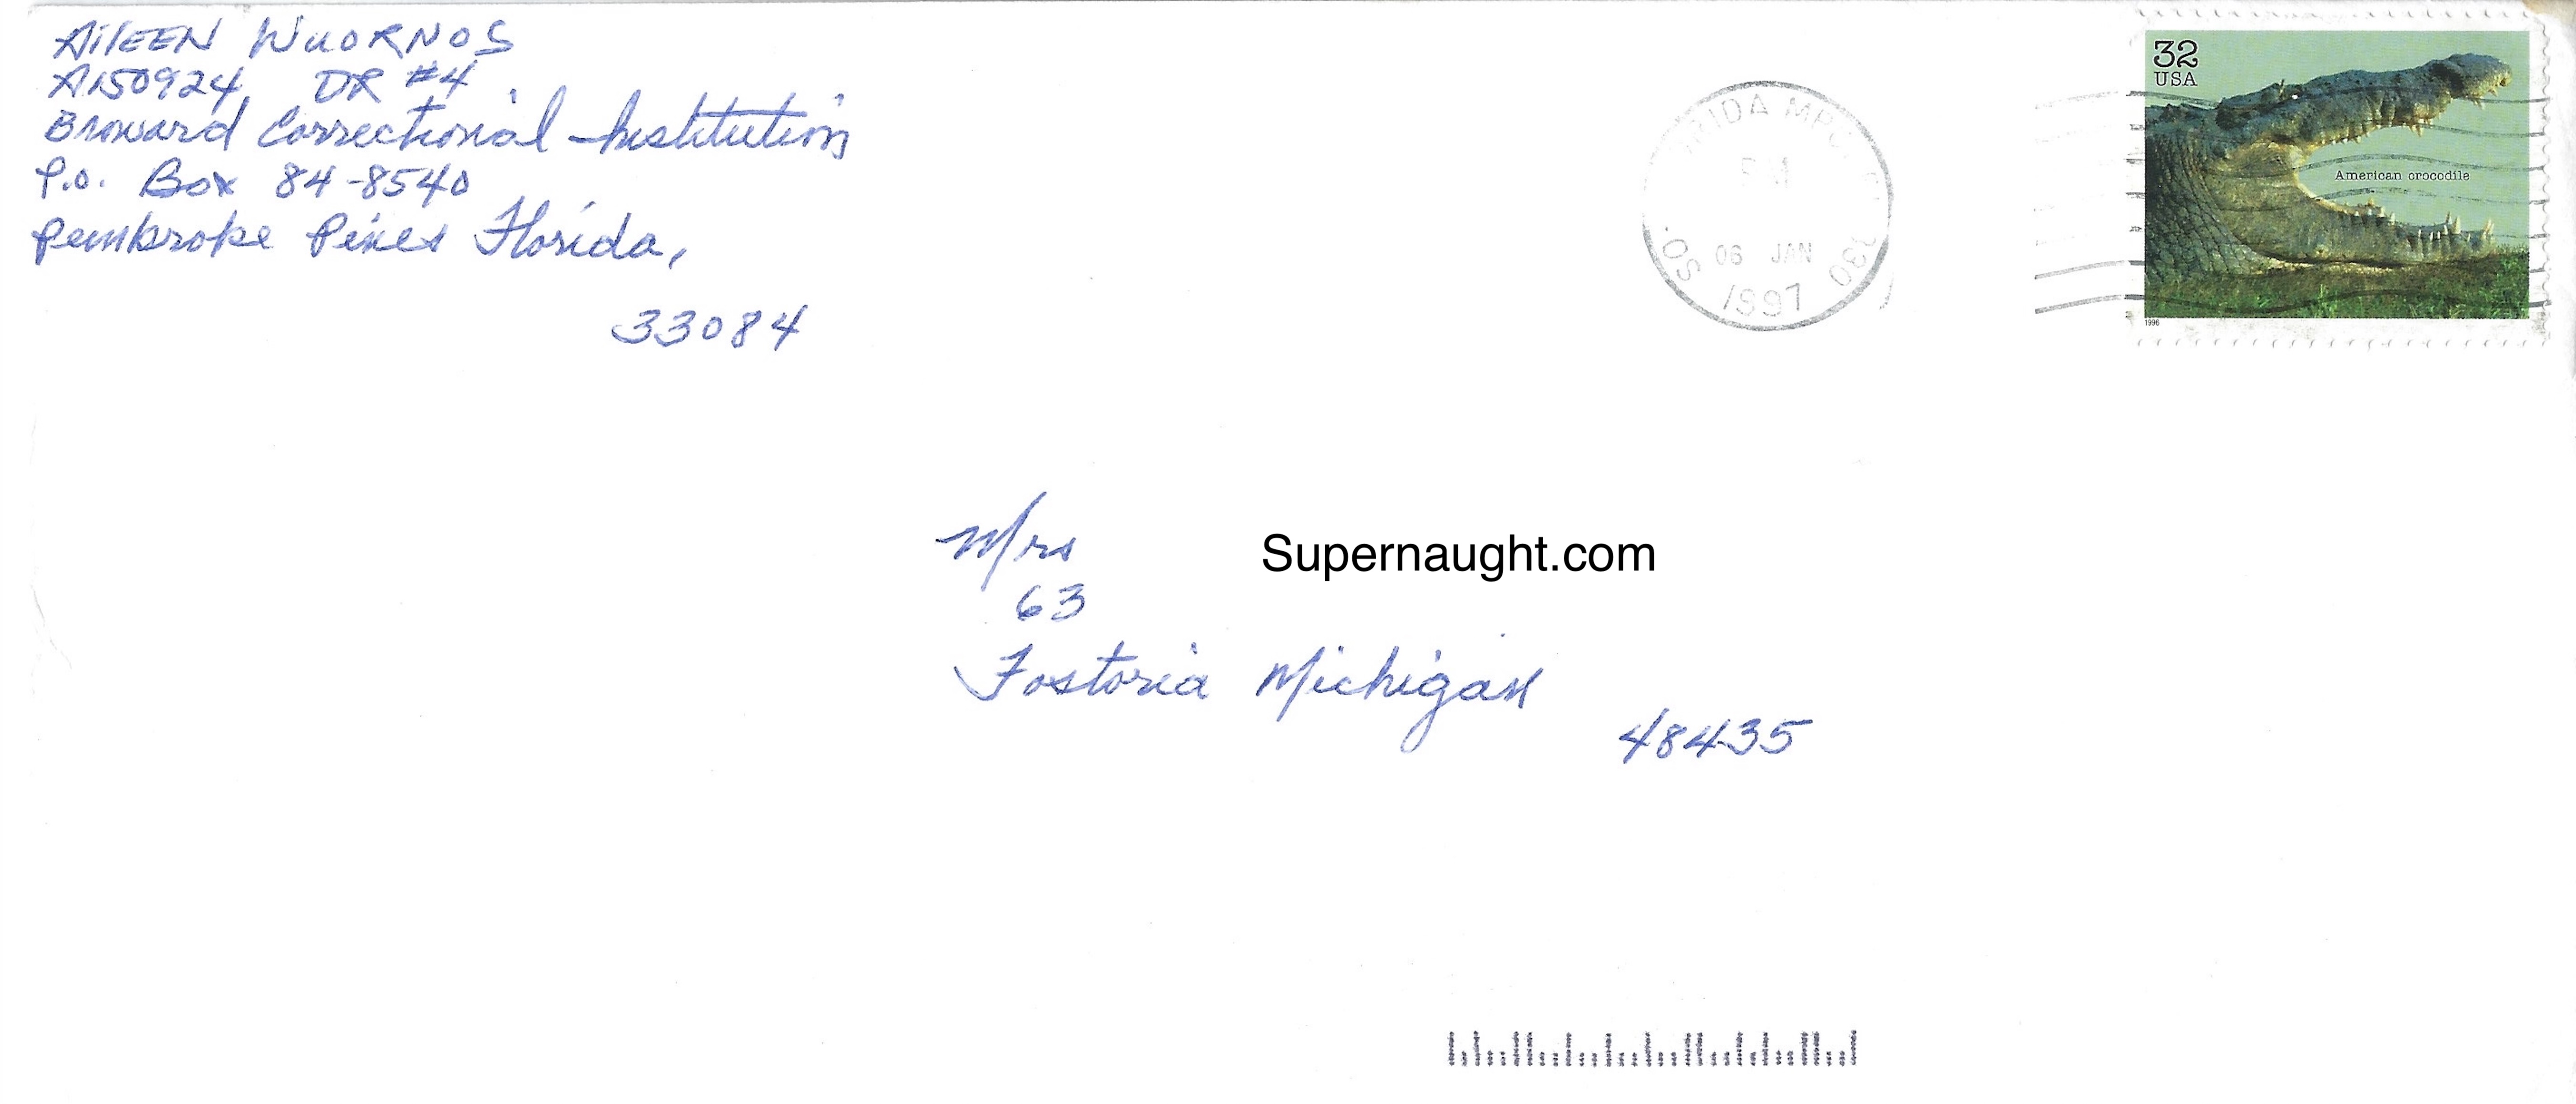 AiLEEN WUORNOS
A150924 DR #4
Broward Correctional Institution
P.O. Box 84-8540
Pembroke Pines Florida,
33084
32
USA
American crocodile
1996
PM
06 JAN
1997
SO.
330
Mrs
Supernaught.com
63
Fostoria Michigan
48435